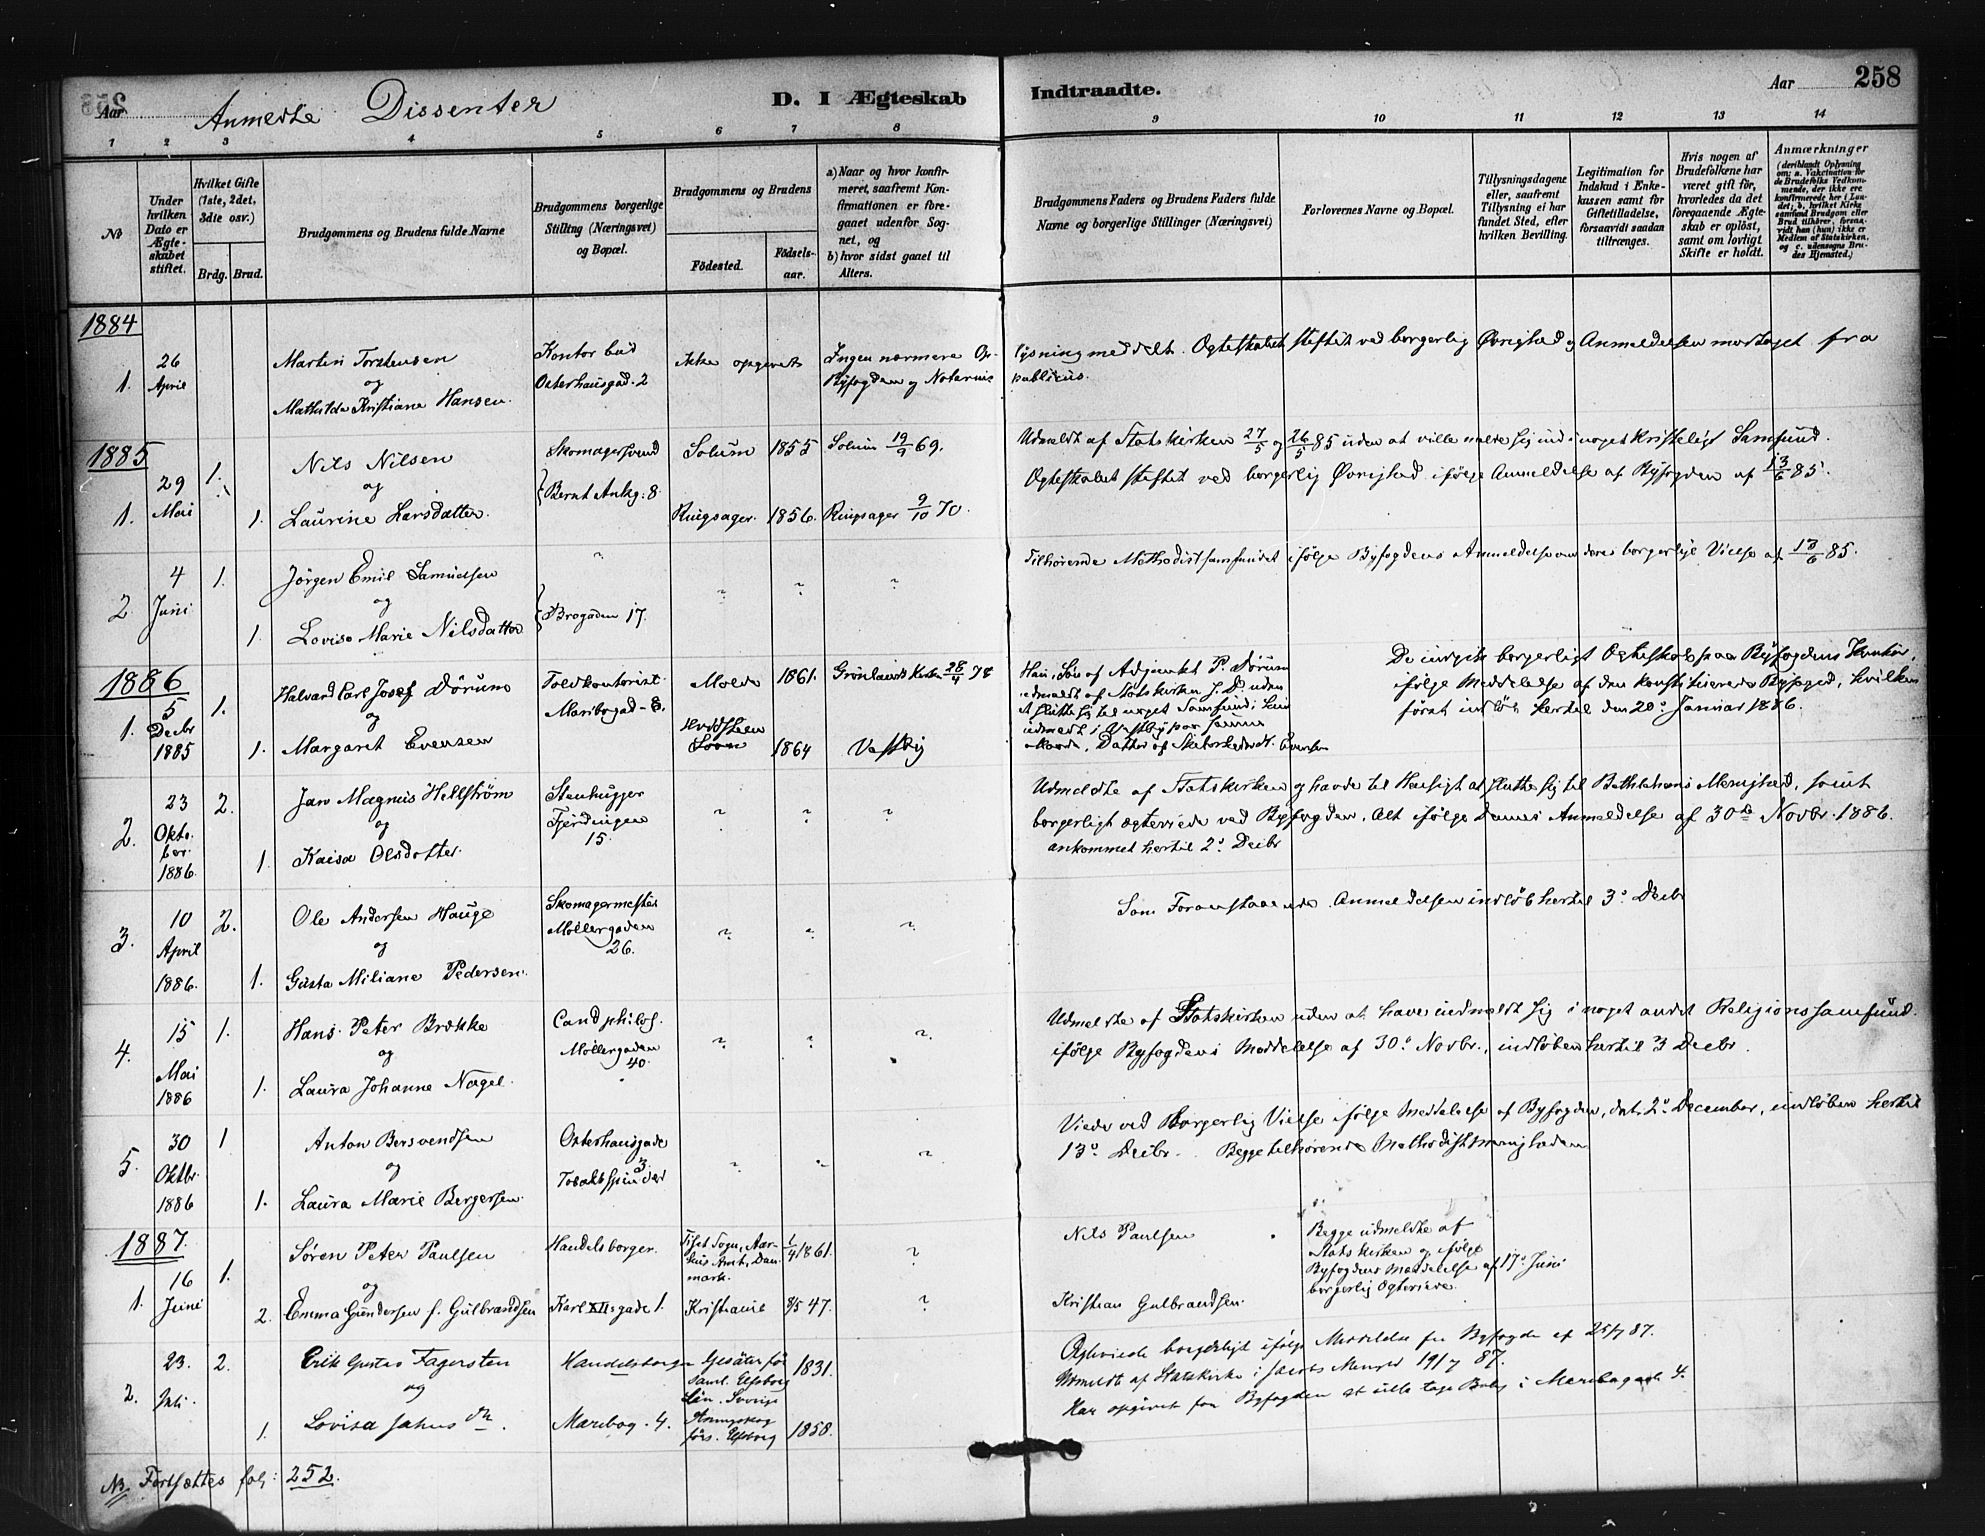 258
Aar
Anmeldte Dissenter
D. I Ægteskab
Indtraadte.
Aar 258
1 2 3 4 5 6 7 8 9 10 11 12 13 14
No
Under
hvilken
Dato er
Ægte-
skabet
stiftet.
Hvilket Gifte
(1ste, 2det,
3die osv.)
Brdg. Brud.
Brudgommens og Brudens fulde Navne
Brudgommens borgerlige
Stilling (Næringsvei)
og Bopæl.
Brudgommens og Brudens
Fødested.
Fødsels-
aar.
a) Naar og hvor konfir-
meret, saafremt Kon-
firmationen er fore-
gaaet udenfor Sog-
net, og
b) hvor sidst gaaet til
Alters.
Brudgommens Faders og Brudens Faders fulde
Navne og borgerlige Stillinger (Næringsvei)
Forlovernes Navne og Bopæl.
Tillysningsdagene
eller, saafremt
Tillysning ei har
fundet Sted, efter
hvilken Bevilling.
Legitimation for
Indskud i Enke-
kassen samt for
Giftetilladelse,
forsaavidt saadan
tiltrænges.
Hvis nogen af
Brudefolkene har
været gift før,
hvorledes da det
foregaaende Ægte-
skab er opløst,
samt om lovligt
Skifte er holdt.
Anmærkninger
(deriblandt Oplysning
om: a. Vakcination for
de Brudefolks Vedkom-
mende, der ikke ere
konfirmerede her i Lan-
det; b, hvilket Kirke-
samfund Brudgom eller
Brud tilhører, forsaa-
vidt han (hun) ikke er
Medlem af Statskirken,
og c. udensogns Bru-
des Hjemsted.)
1884
1. 26 April
Martin Torstensen
og
Mathilde Kristiane Hansen.
Kontorbud
Osterhausgad. 2
Ikke opgivet
Ingen nærmere Op-
lysning meddelt. Ægteskabet stiftet ved borgerlig Øvrighed og Anmeldelsen mottaget fra
Byfogden og Notarius
publicus.
1885
1. 29 Mai 1. 1.
Nils Nilsen
og
Laurine Larsdatter.
Skomagersvend
Bernt Ankg. 8.
Solum 1855 Solum 19/9 69.
Ringsager. 1856. Ringsager 9/10 70.
Udmeldt af Statskirken 27/5 og 26/5 85 uden at ville melde sig ind i noget kristeligt Samfund.
Ægteskabet stiftet ved borgerlig Øvrighed ifølge Anmeldelse af Byfogden af 13/6 85.
2. 4 Juni 1. 1.
Jörgen Emil Samuelsen
og
Lovise Marie Nilsdatter
Brogaden 17.
Tilhørende Methodistsamfundet ifølge Byfogdens Anmeldelse om deres borgerlige Vielse af 13/6 85.
1886
1. 5 Decbr 1885 1. 1.
Halvard Carl Josef Dørum
og
Margaret Evensen
Toldkontorist.
Maribogad. 8.
Molde 1861. Grønlands Kirke 28/4 78
Hvidsteen
1864 Vestby
Han, Søn af Adjunkt P. Dørum
udmeldt af Statskirken uden
at slutte sig til noget Samfund; hun
udmeldt i Vestby paa samme
Maade, Datter af Evensen
De indgik borgerligt Ægteskab paa Byfogdens Kontor,
ifølge Meddelelse af den konstituerede Byfoged, hvilken
først indløb hertil den 20. Januar 1886.
2. 23 Oktober 1886. 2. 1.
Jan Magnus Hellström
og
Kaisa Olsdotter.
Stenhugger
Fjerdingen
15.
Udmeldte af Statskirken og havde til Hensigt at slutte sig til Bethlehems Menighed, samt
borgerligt ægteviede ved Byfogden, Alt ifølge dennes Anmeldelse af 30te Novbr. 1886.
ankommet hertil 2. Decbr
3. 10 April 1886. 2. 1.
Ole Andersen Hauge
og
Gusta Miliane Pedersen.
Skomagermester
Møllergaden
26.
Som Foranstaaende. Anmeldelsen indløb hertil 3. Decbr
4. 15 Mai 1886 1. 1.
Hans Peter Brække
og
Laura Johanne Nagel.
Cand philos.
Møllergaden
40.
Udmeldte af Statskirken uden at have indmeldt sig i noget andet Religionssamfund.
ifølge Byfogdens Meddelelse af 30. Novbr., indløben hertil 3 Decbr.
5. 30 Oktbr. 1886 1 1.
Anton Bersvendsen
og
Laura Marie Bergersen.
Osterhausgade
3.
Tobaksspinder
Viede ved Borgerlig Vielse ifølge Meddelelse af Byfogden, dat. 2. December, indløben hertil
13. Decbr. Begge tilhørende Methodistmenigheden
1887.
1. 16 Juni 1. 2.
Søren Peter Paulsen
og
Emma Gundersen f. Gulbrandsen
Handelsborger.
Karl XIIsgade 1.
Tiset Sogn, Aar-
hus Amt, Dan-
mark. 1/4 1861.
Kristiania 8/5 47.
Nils Paulsen
Kristian Gulbrandsen.
Begge udmeldte af
Statskirken og ifølge
Byfogdens Meddelelse af 17. Juni
borgerlig Ægteviede.
2. 23. Juli. 2. 1.
Erik Gustav Fagersten
og
Lovisa Jahns dtr.
Handelsborger
Maribog. 4.
Gesäter förs
saml. Elfsborg
Län. Sverige 1831.
förs. Elfsborg 1858.
Ægteviede borgerligt ifølge Meddelelse fra Byfogden af 25/7 87.
Udmeldt af Statskirken i Jacobs Menighed 19/7 87.
Har opgivet for Byfogden at ville tage Bolig i Maribogade 4.
NB Fortsættes fol: 252.